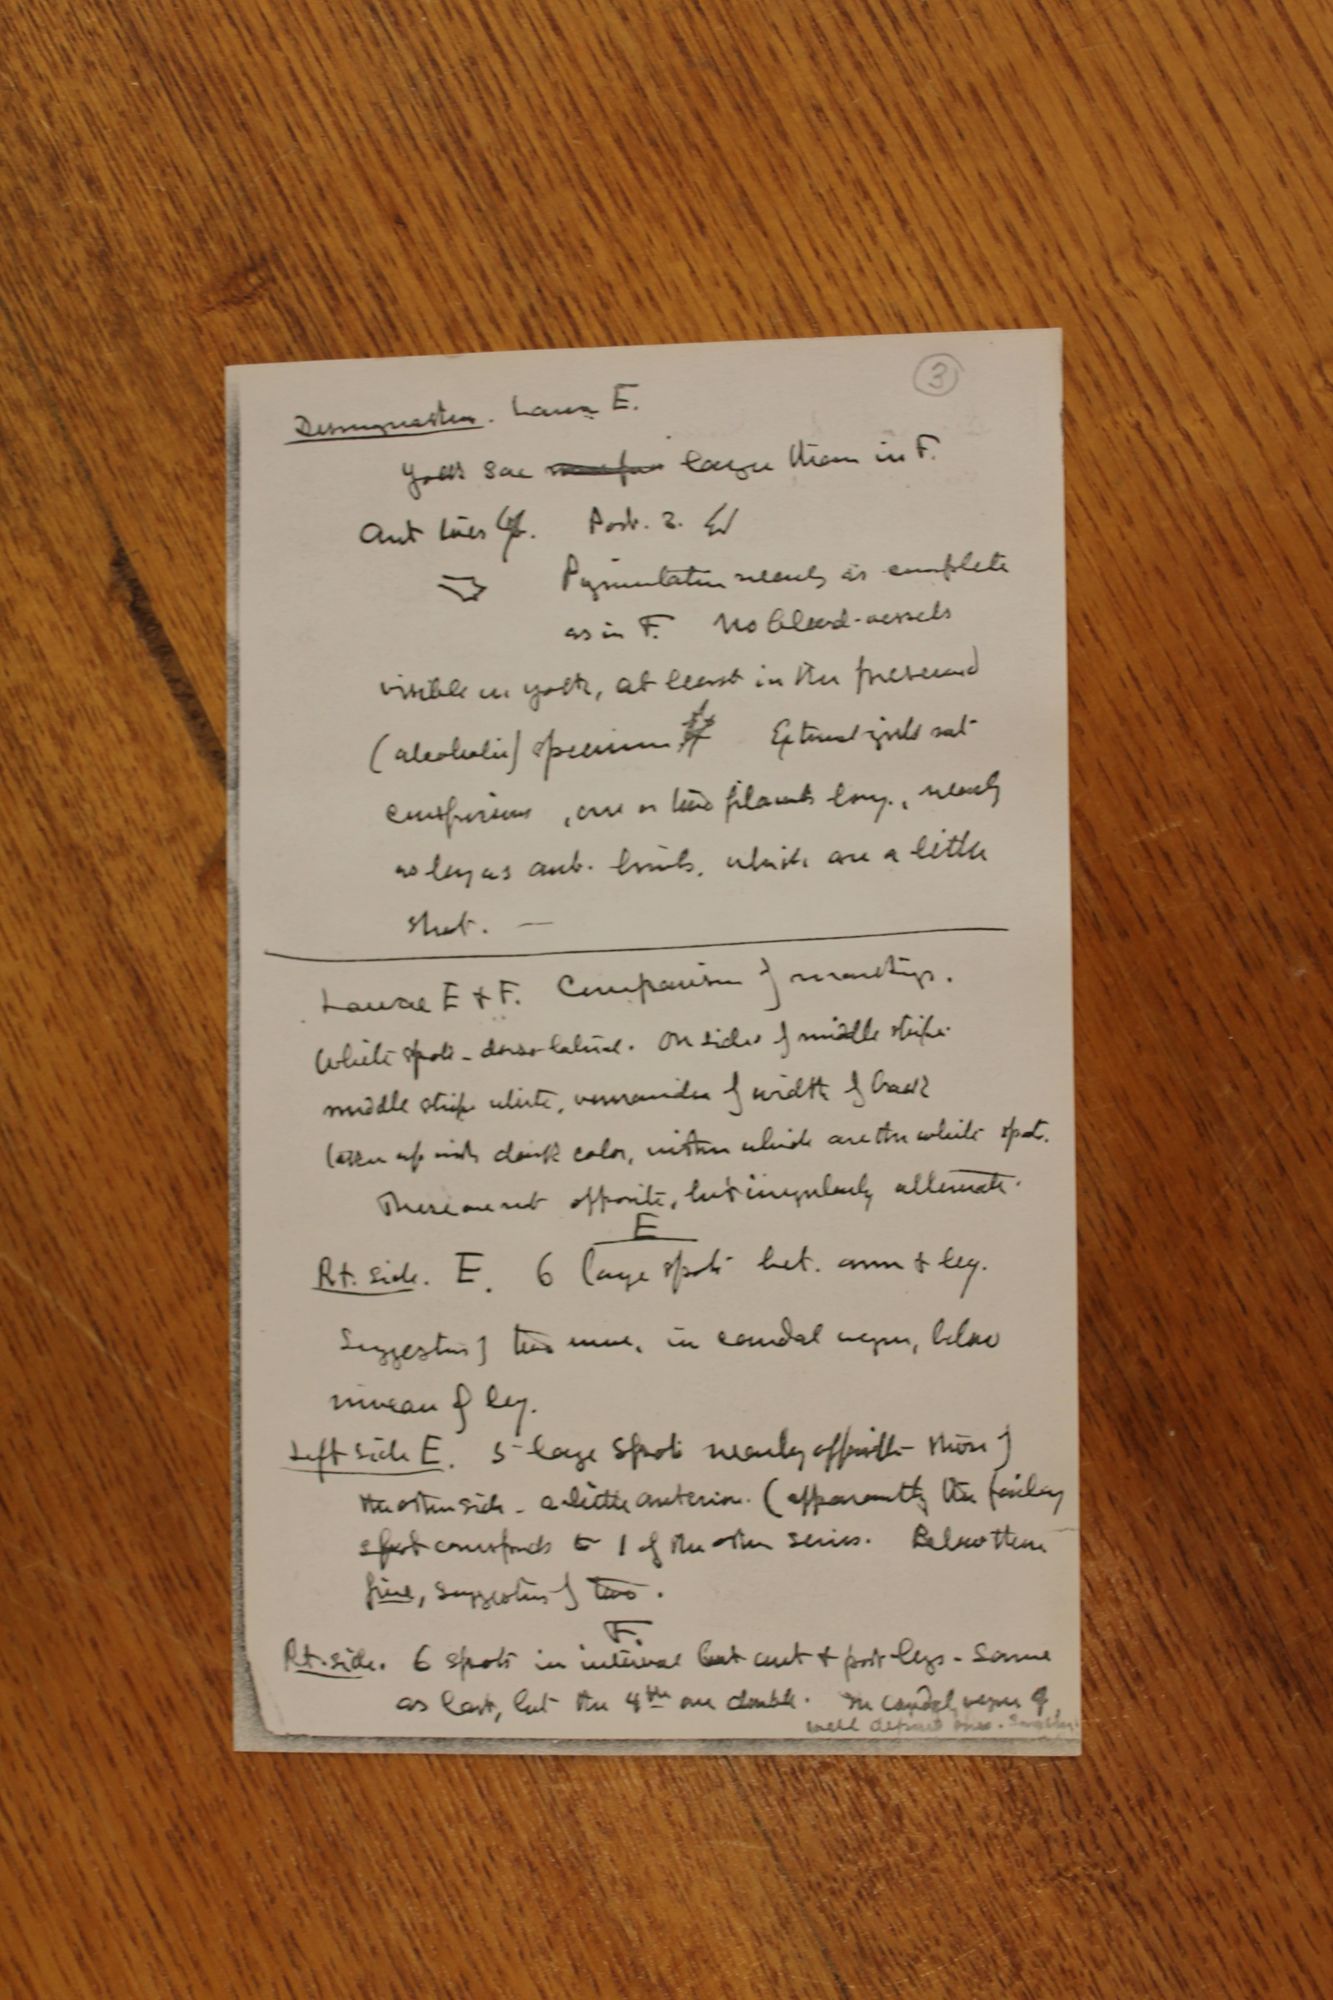 3
Desmognathus. Larva E.
Yolk sac larger than in F.
Ant toes 4. Post. 2.
Pigmentation nearly as complete
as in F. No blood-vessels
visible in yolk, at least in the preserved
(alcoholic) specimen External gills not
conspicuous, one or two filaments long, nearly
as long as ant. limbs, which are a little
short. —
Larvae E & F. Comparison of markings.
White spots - dorso-lateral. On sides of middle stripe.
middle stripe white, remainder of width of back
taken up with dark color, within which are the white spots.
These are not opposite, but irregularly alternate.
E
Rt. side. E. 6 large spots bet. arm & leg.
Suggestion of two more, in caudal region, below
niveau of leg.
Left side E. 5 large spots nearly opposite those of
the other side - a little anterior. (apparently the
spot corresponds to 1 of the other series. Below these
five, suggestion of two.
F.
Rt. side. 6 spots in interval bet ant & post legs - same
as last, but the 4th one double. In caudal region
well